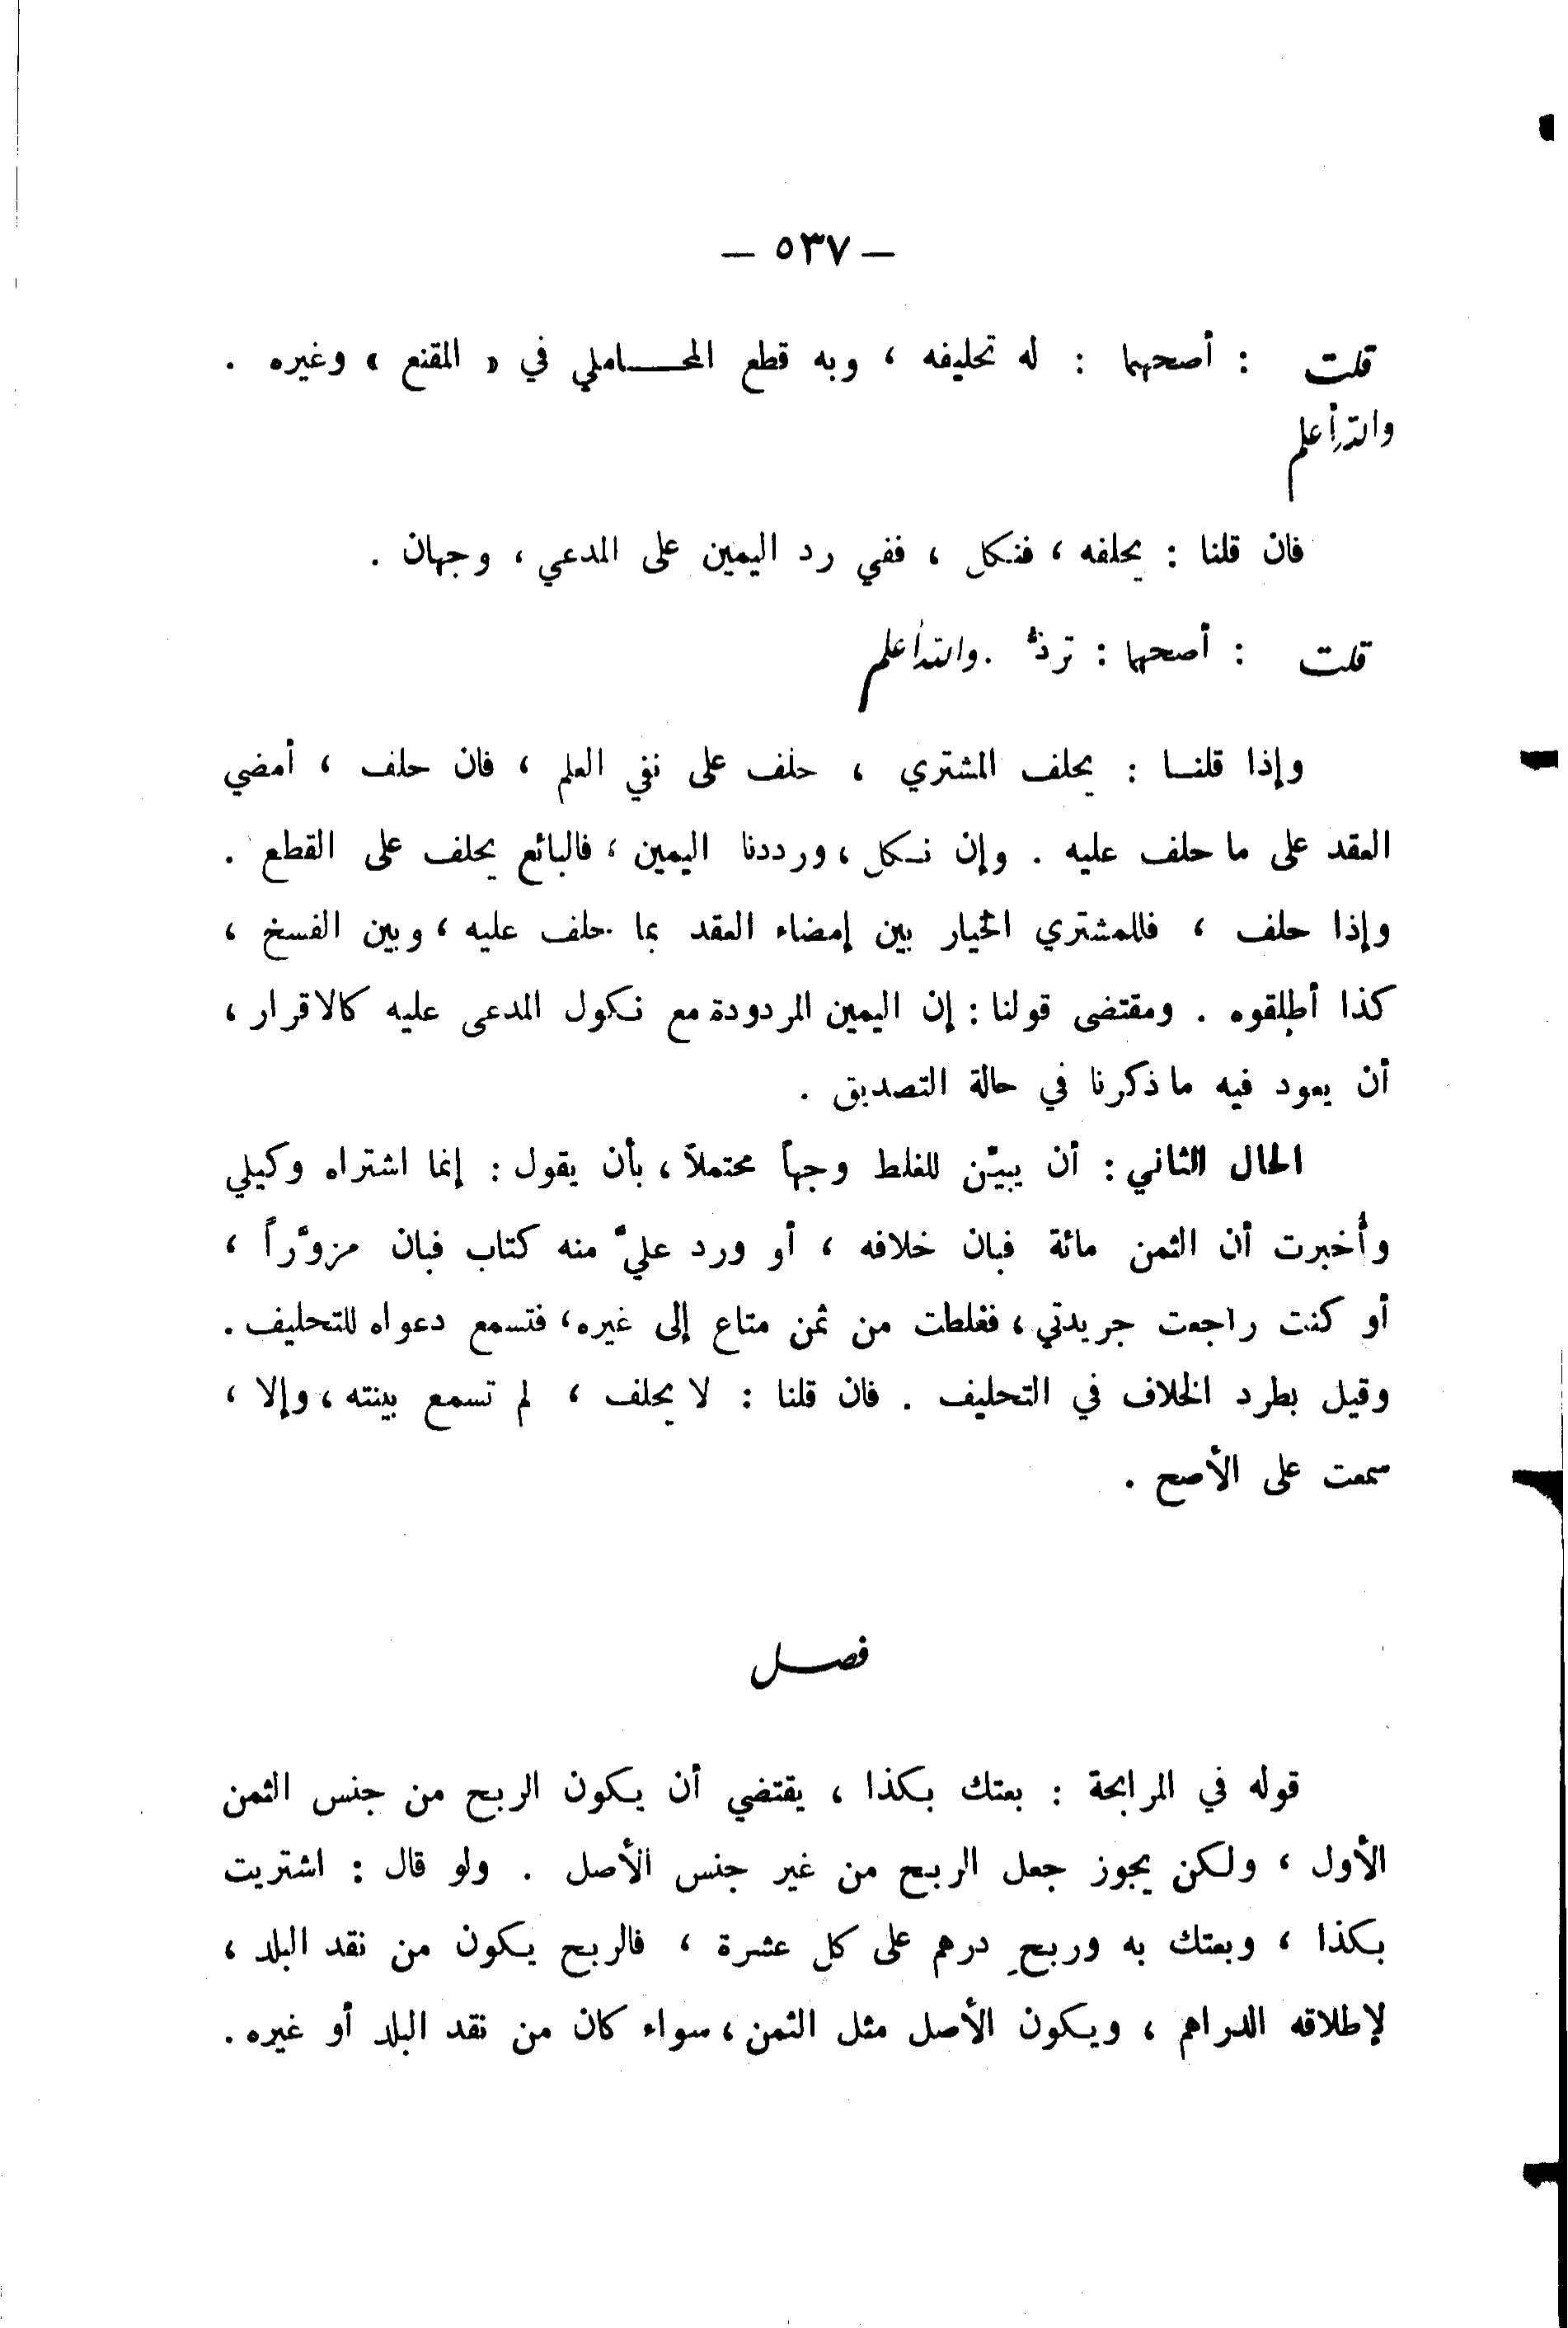 — ٥٣٧ —
قلت : أصحهما : له تحليفه ، وبه قطع المحـــاملي في « المقنع » وغيره .
والله أعلم
فان قلنا : يحلفه ، فنكل ، ففي رد اليمين على المدعي ، وجهان .
قلت : أصحهما : تردُّ . والله أعلم
وإذا قلنـا : يحلف المشتري ، حلف على نفي العلم ، فان حلف ، أمضي
العقد على ما حلف عليه . وإن نـكل ، ورددنا اليمين ، فالبائع يحلف على القطع .
وإذا حلف ، فللمشتري الخيار بين إمضاء العقد بما حلف عليه ، وبين الفسخ ،
كذا أطلقوه . ومقتضى قولنا : إن اليمين المردودة مع نكول المدعى عليه كالاقرار ،
أن يعود فيه ما ذكرنا في حالة التصديق .
الحال الثاني : أن يبيّن للغلط وجهاً محتملاً ، بأن يقول : إنما اشتراه وكيلي
وأُخبرت أن الثمن مائة فبان خلافه ، أو ورد عليَّ منه كتاب فبان مزوَّراً ،
أو كنت راجعت جريدتي ، فغلطت من ثمن متاع إلى غيره ، فتسمع دعواه للتحليف .
وقيل بطرد الخلاف في التحليف . فان قلنا : لا يحلف ، لم تسمع بينته ، وإلا ،
سمعت على الأصح .
فصـــل
قوله في المرابحة : بعتك بكذا ، يقتضي أن يكون الربح من جنس الثمن
الأول ، ولكن يجوز جعل الربح من غير جنس الأصل . ولو قال : اشتريت
بكذا ، وبعتك به وربحِ درهم على كل عشرة ، فالربح يكون من نقد البلد ،
لإطلاقه الدراهم ، ويكون الأصل مثل الثمن ، سواء كان من نقد البلد أو غيره .